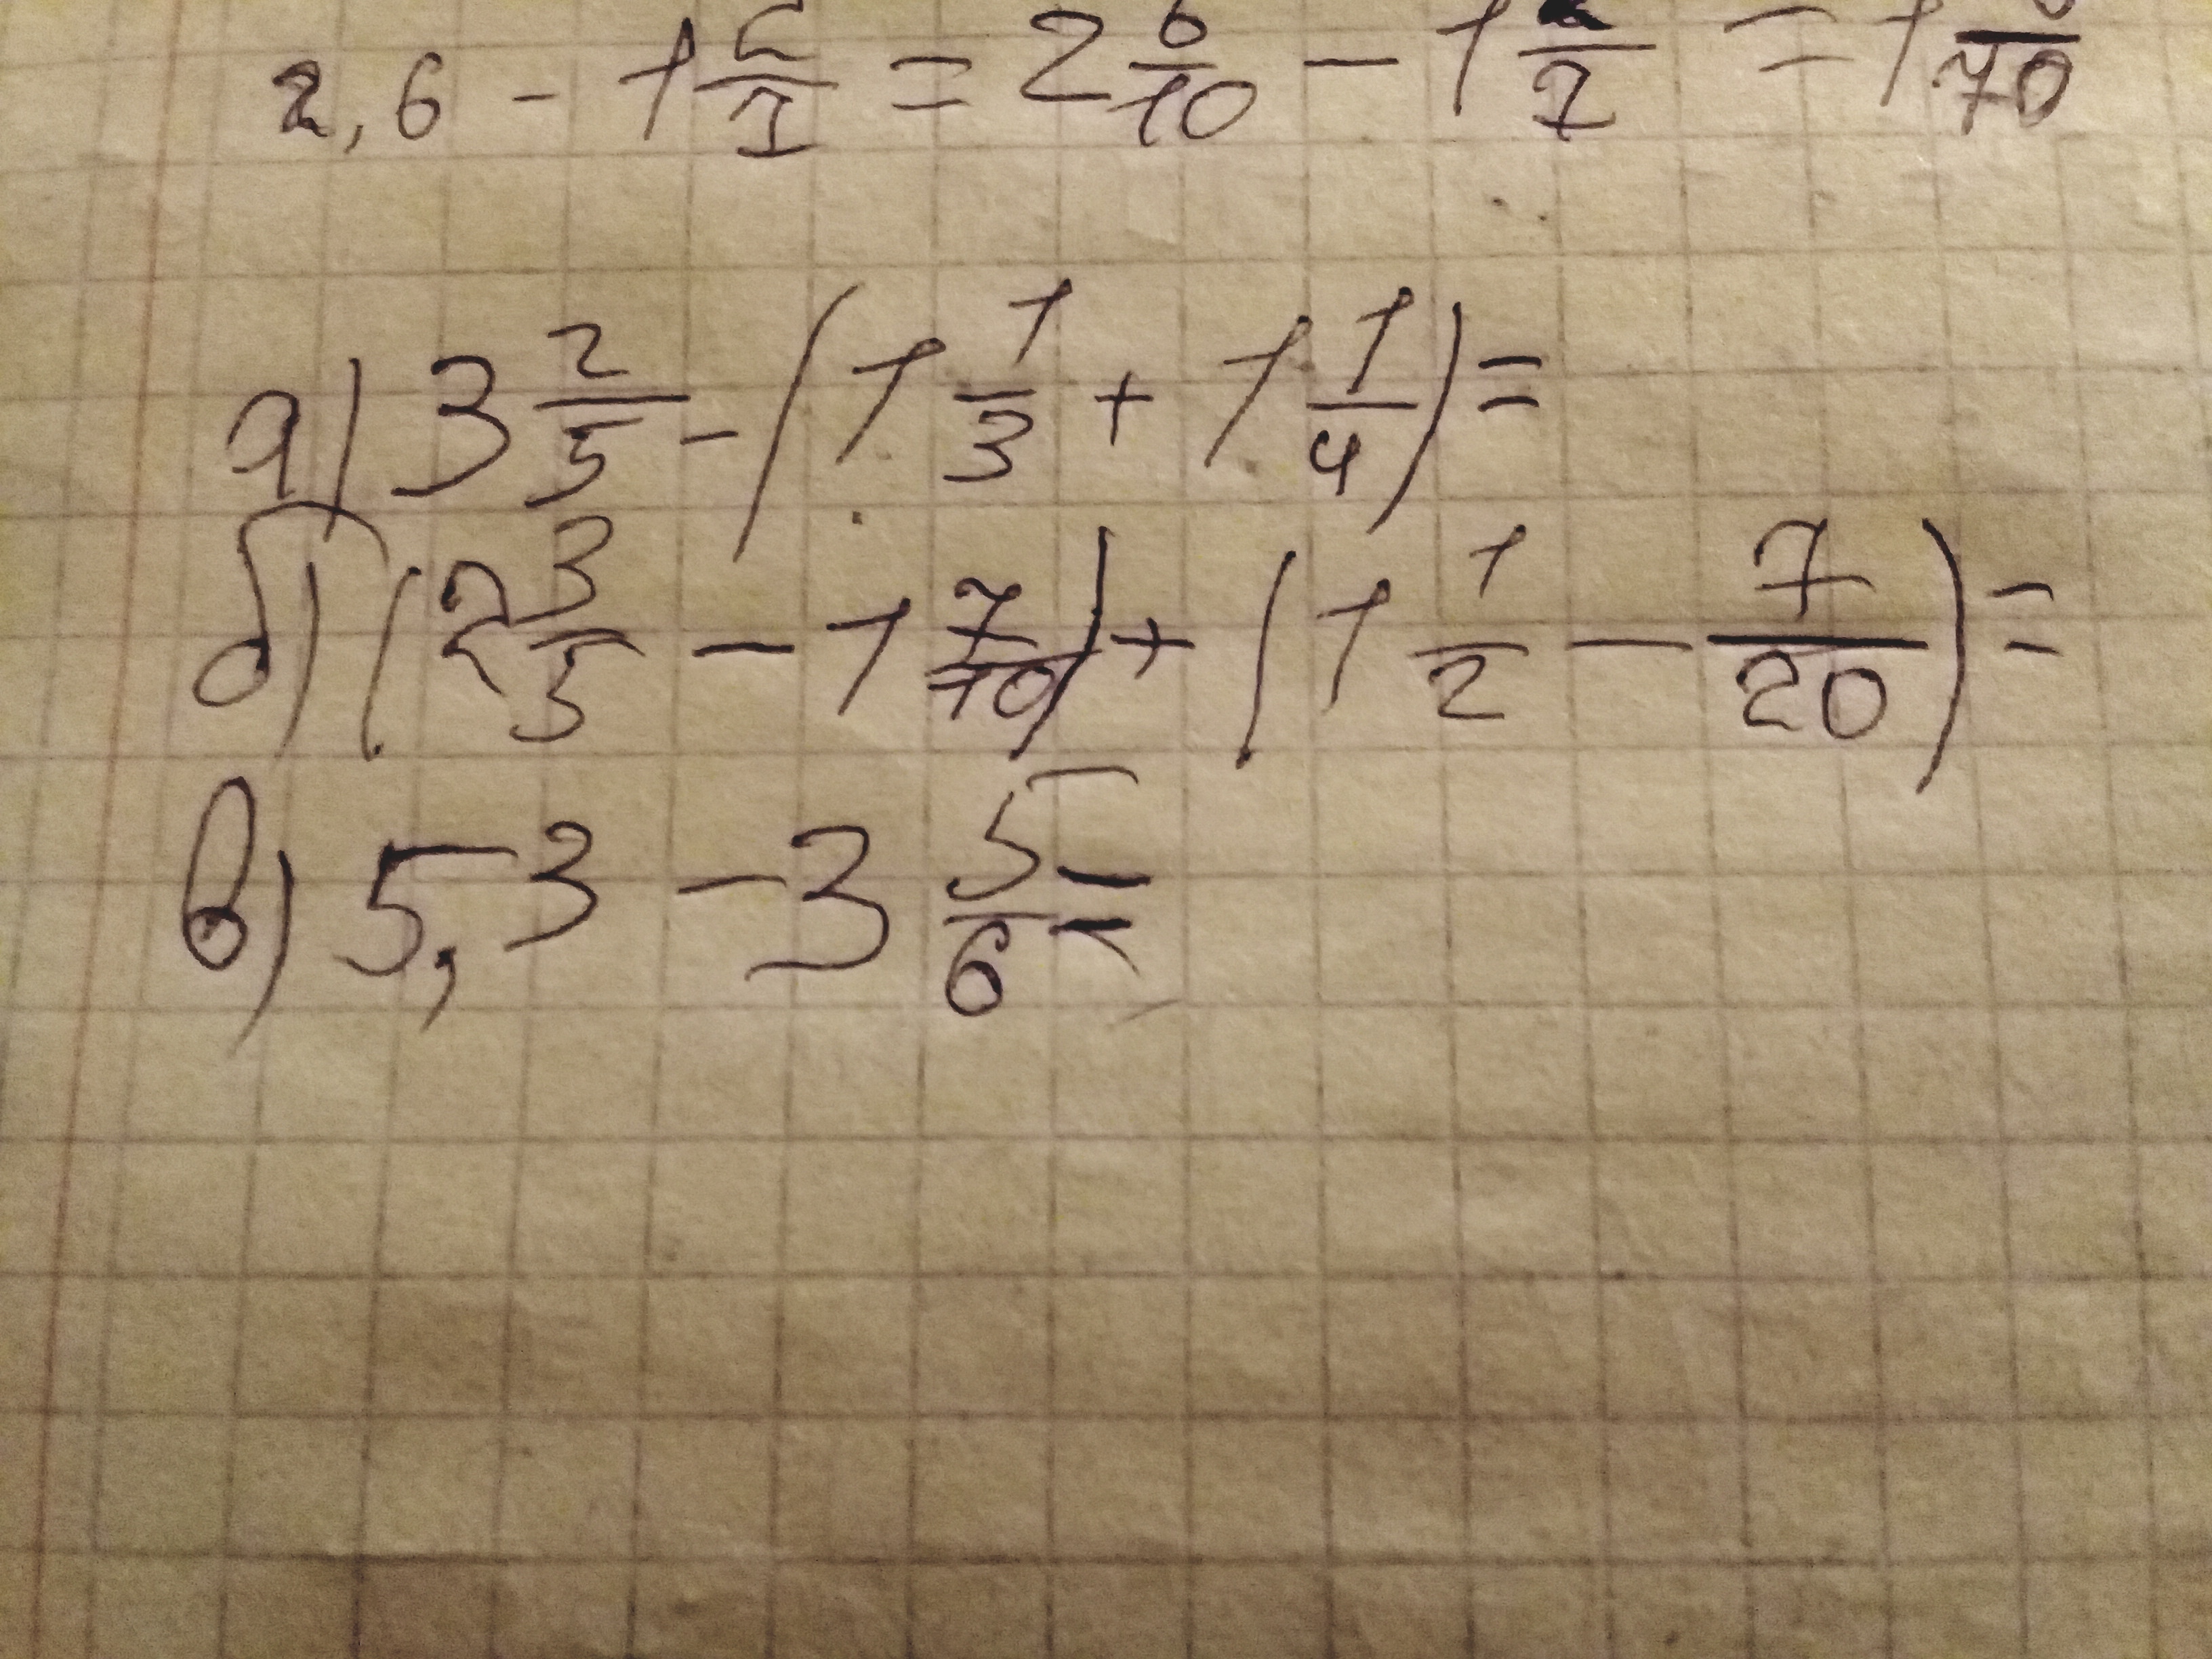 2,6 - 1 = 2 6/10 - 1 = 1
а) 3 2/5 - (1 1/3 + 1 1/4) =
б) (2 3/5 - 1 7/10) + (1 1/2 - 7/20) =
в) 5,3 - 3 5/6 =